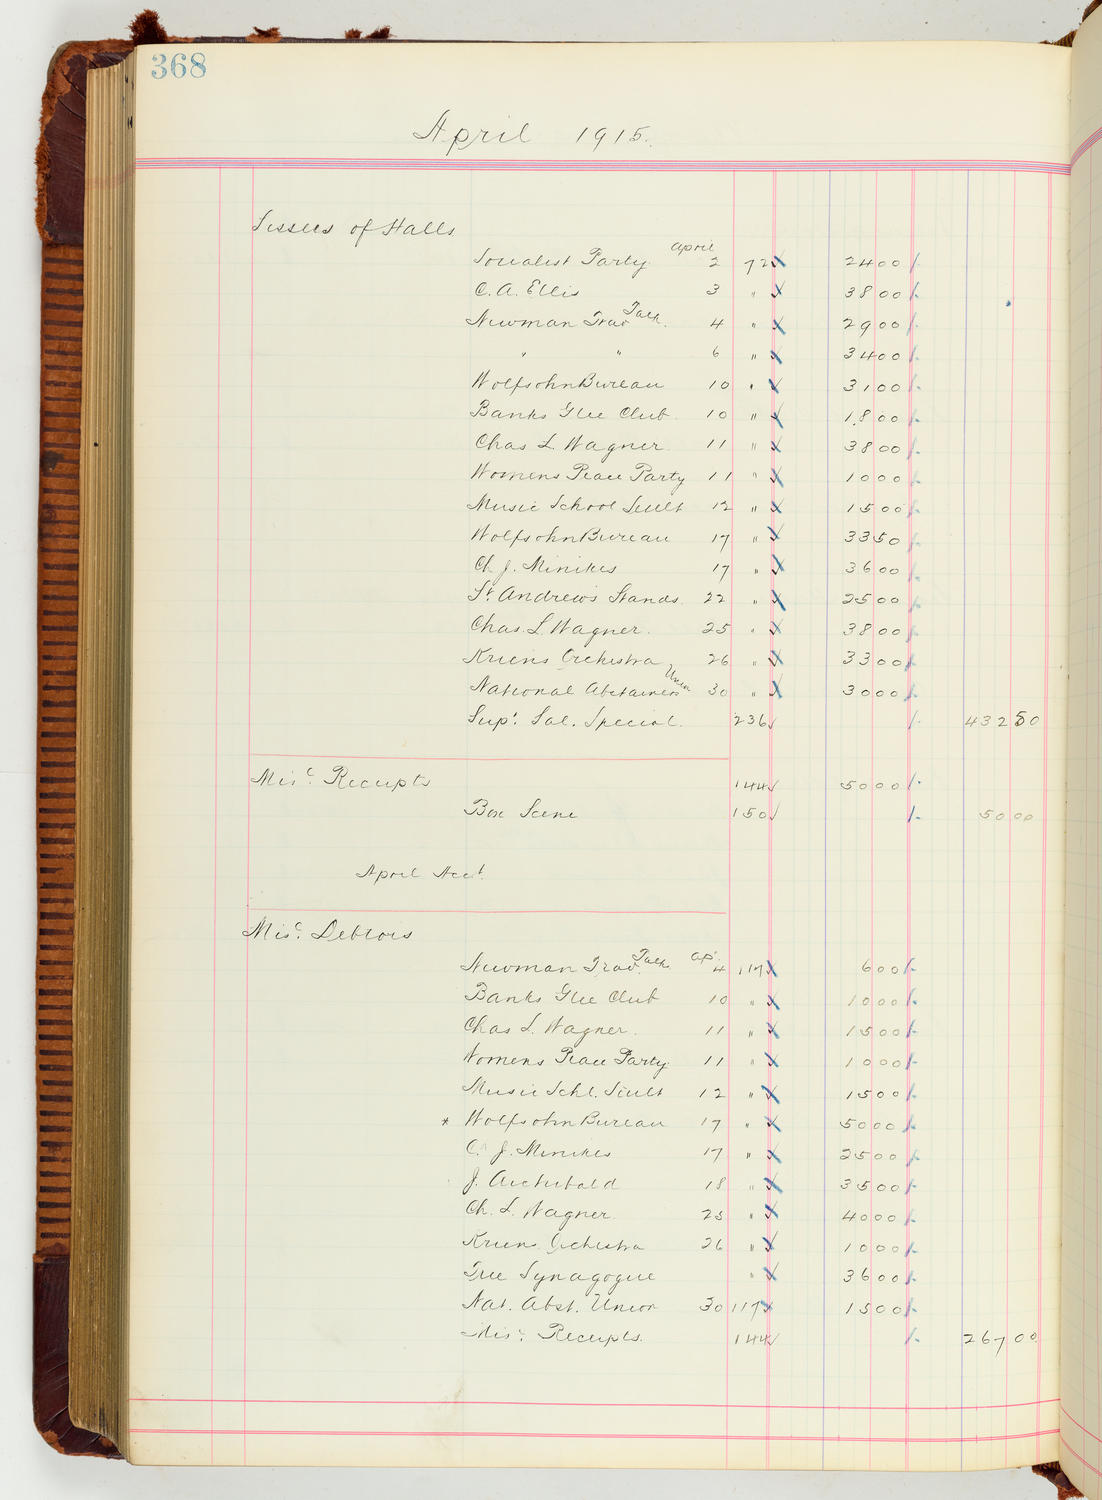 368
April 1915.
Lessees of Halls
Socialist Party April 2 72 2400
C. A. Ellis 3 " 3800
Newman Trav Talk. 4 " 2900
" " 6 " 3400
Wolfsohn Bureau 10 " 3100
Banks Glee Club 10 " 1800
Chas L. Wagner 11 " 3800
Womens Peace Party 11 " 1000
Music School Settlt 12 " 1500
Wolfsohn Bureau 17 " 3350
Ch. J. Minikes 17 " 3600
St Andrews Stands 22 " 2500
Chas. L. Wagner. 25 " 3800
Kriens Orchestra 26 " 3300
National Abstainers Union 30 " 3000
Supt. Sal. Special. 236 43250
Misc. Receipts 144 5000
Box Scene 150 5000
April Acct.
Misc. Debtors
Newman Trav. Talk Ap. 4 117 600
Banks Glee Club 10 " 1000
Chas L. Wagner. 11 " 1500
Womens Peace Party 11 " 1000
Music Schl. Settlt 12 " 1500
* Wolfsohn Bureau 17 " 5000
C. J. Minikes 17 " 2500
J. Archibald 18 " 3500
Ch. L. Wagner 25 " 4000
Kriens Orchestra 26 " 1000
Free Synagogue " 3600
Nat. Abst. Union 30 117 1500
Misc. Receipts. 144 26700